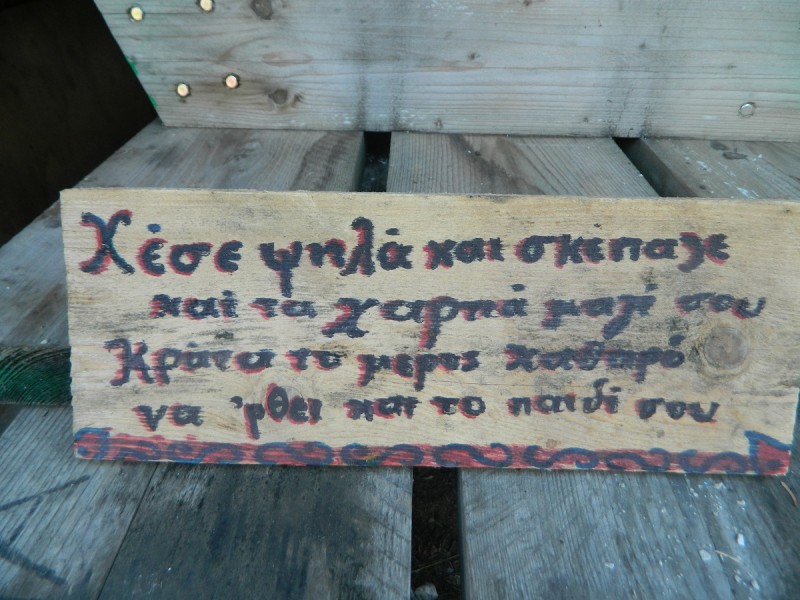 Χέσε ψηλά και σκέπαζε
και τα χαρτιά μαζί σου
Κράτα το μέρος καθαρό
να 'ρθει και το παιδί σου